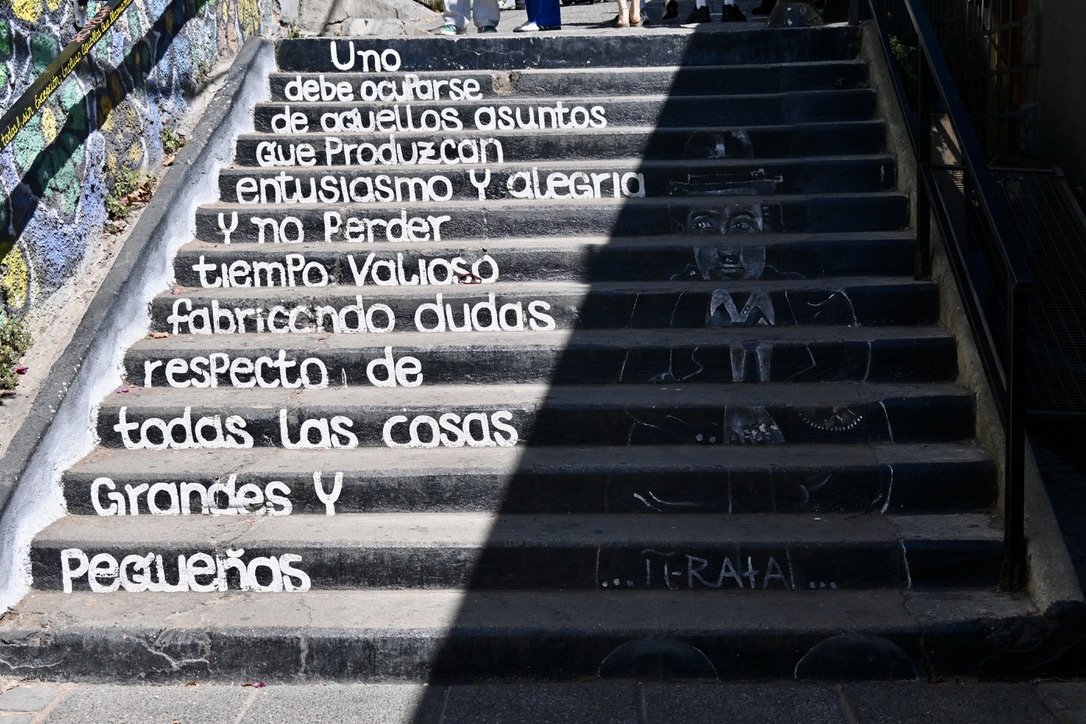 Uno
debe ocuparse
de aquellos asuntos
que Produzcan
entusiasmo Y alegria
Y no Perder
tiempo Valioso
fabricando dudas
respecto de
todas las cosas
Grandes Y
Pequeñas